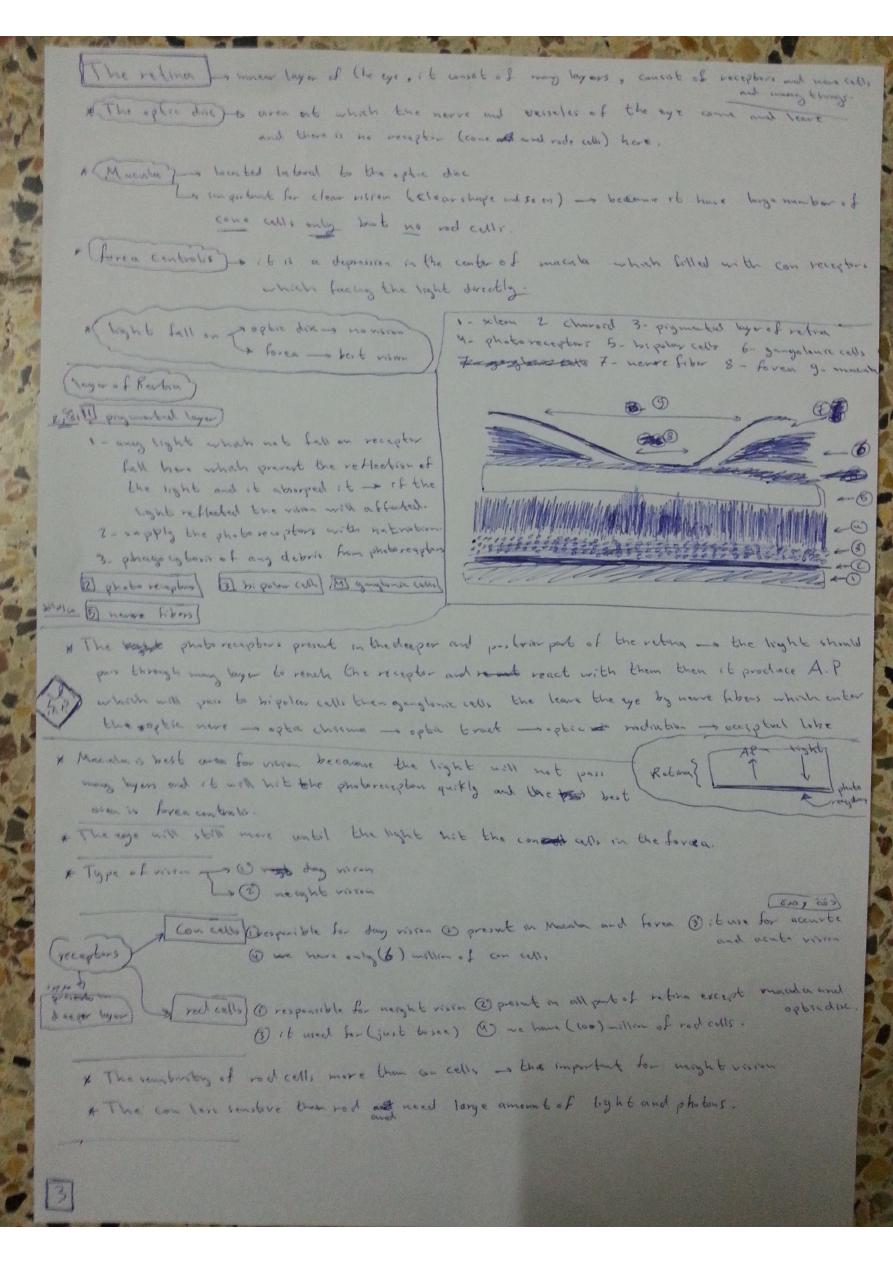 The retina → inner layer of the eye, it conset of many layers, consist of receptors and nerve cells
and many things.
* The optic disc → area at which the nerve and vesseles of the eye come and leave
and there is no receptor (cone and rode cells) here.
* Macula → located lateral to the optic disc
→ important for clear vision (clear shape and seen) → because it have large number of
cone cells only but no rod cells.
* forea centralis → it is a depression in the center of macula which filled with con receptors
which facing the light directly.
* light fall on → optic disc → no vision
→ forea → best vision
1- sclera 2- charoid 3- pigmental layer of retina
4- photoreceptors 5- bipolar cells 6- gangelonic cells
7- nerve fiber 8- forea 9- macula
layer of Rertina
1 pigmental layer
1- any light which not fall on receptor
fall here which prevent the reflection of
the light and it absorped it → if the
light reflected the vision will affected.
2- supply the photoreceptors with nutration
3- phagocytosis of any debris from photoreceptors
2 photoreceptors 3 bipolar cell 4 ganglonic cells
5 nerve fibers
9
8
7
6
5
4
3
2
1
* The photoreceptors present in the deeper and postrior part of the retina → the light should
pass through many layer to reach the receptor and react with them then it produce A.P
which will pass to bipolar cells then ganglonic cells the leave the eye by nerve fibers which enter
the optic nerve → optic chisma → optic tract → optic radiation → occiptual lobe
* Macula is best area for vision because the light will not pass
many layers and it will hit the photoreceptors quickly and the best
area is forea centralis.
Retina { AP light
photo receptors
* The eye will still move until the light hit the con cells in the forea.
* Type of vision → ① day vision
→ ② neight vision
receptors
present in
deeper layer
Con cells ① responsible for day vision ② present in Macula and forea ③ it use for accurte
and acute vision
④ we have only (6) million of con cells.
rod cells ① responsible for neight vision ② present in all part of retina except macula and
optic disc.
③ it used for (just to see) ④ we have (100) million of rod cells.
* The sensitivity of rod cells more than con cells → the important for neight vision
* The con less sensitive than rod and need large amount of light and photons.
3